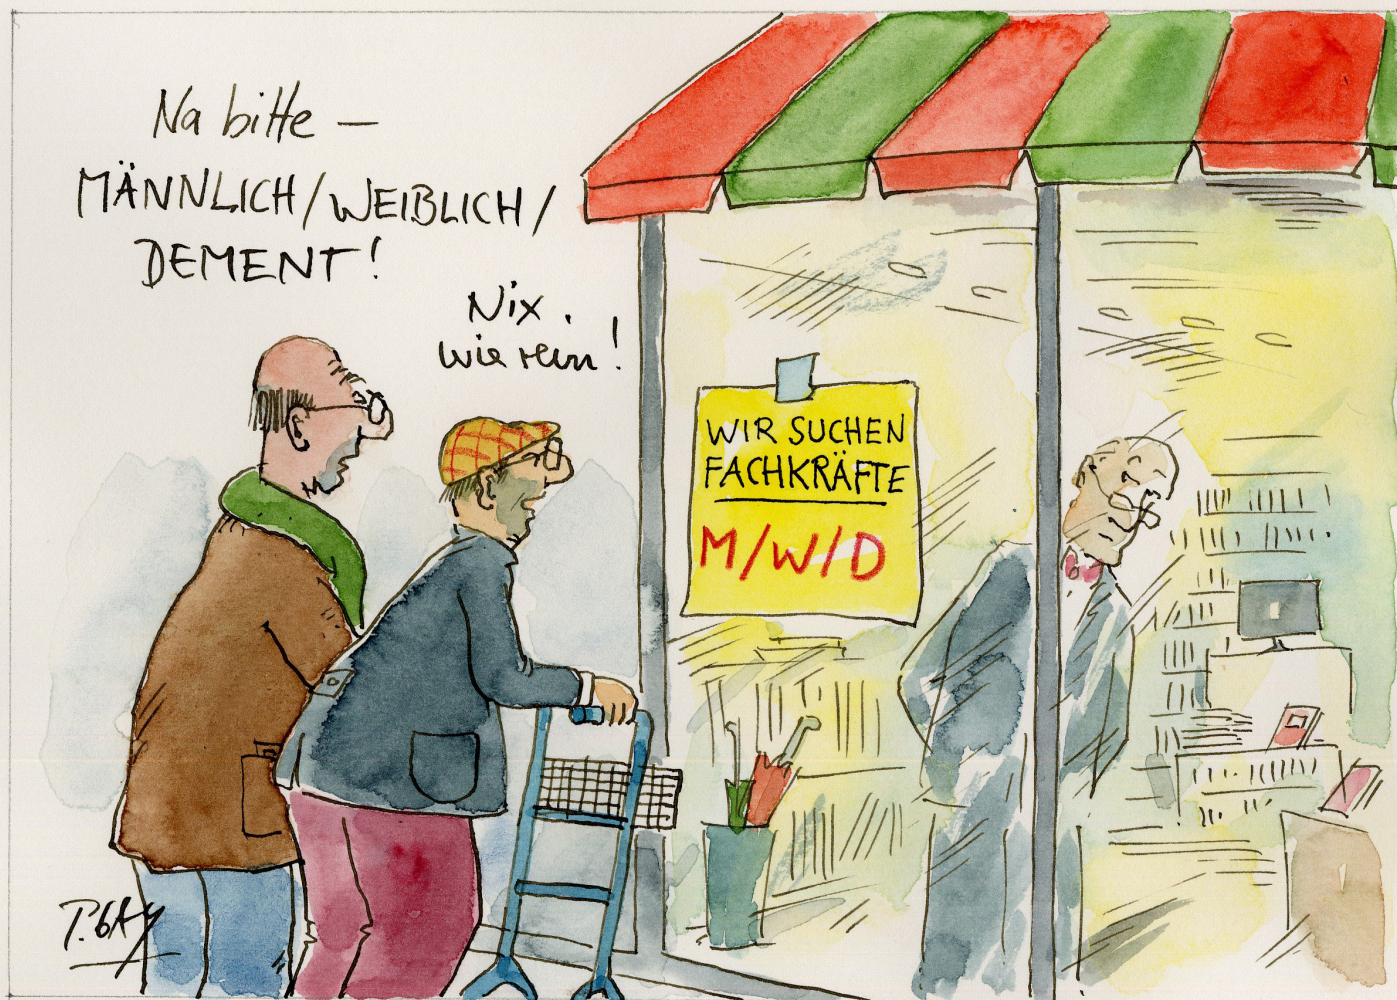 Na bitte –
MÄNNLICH/WEIBLICH/
DEMENT!
Nix .
wie rein!
WIR SUCHEN
FACHKRÄFTE
M/W/D
P. GAY